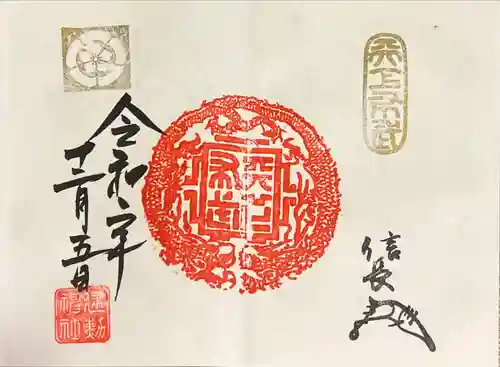 天下布武
信長
天下
布武
令和二年
十二月五日
建勲
神社